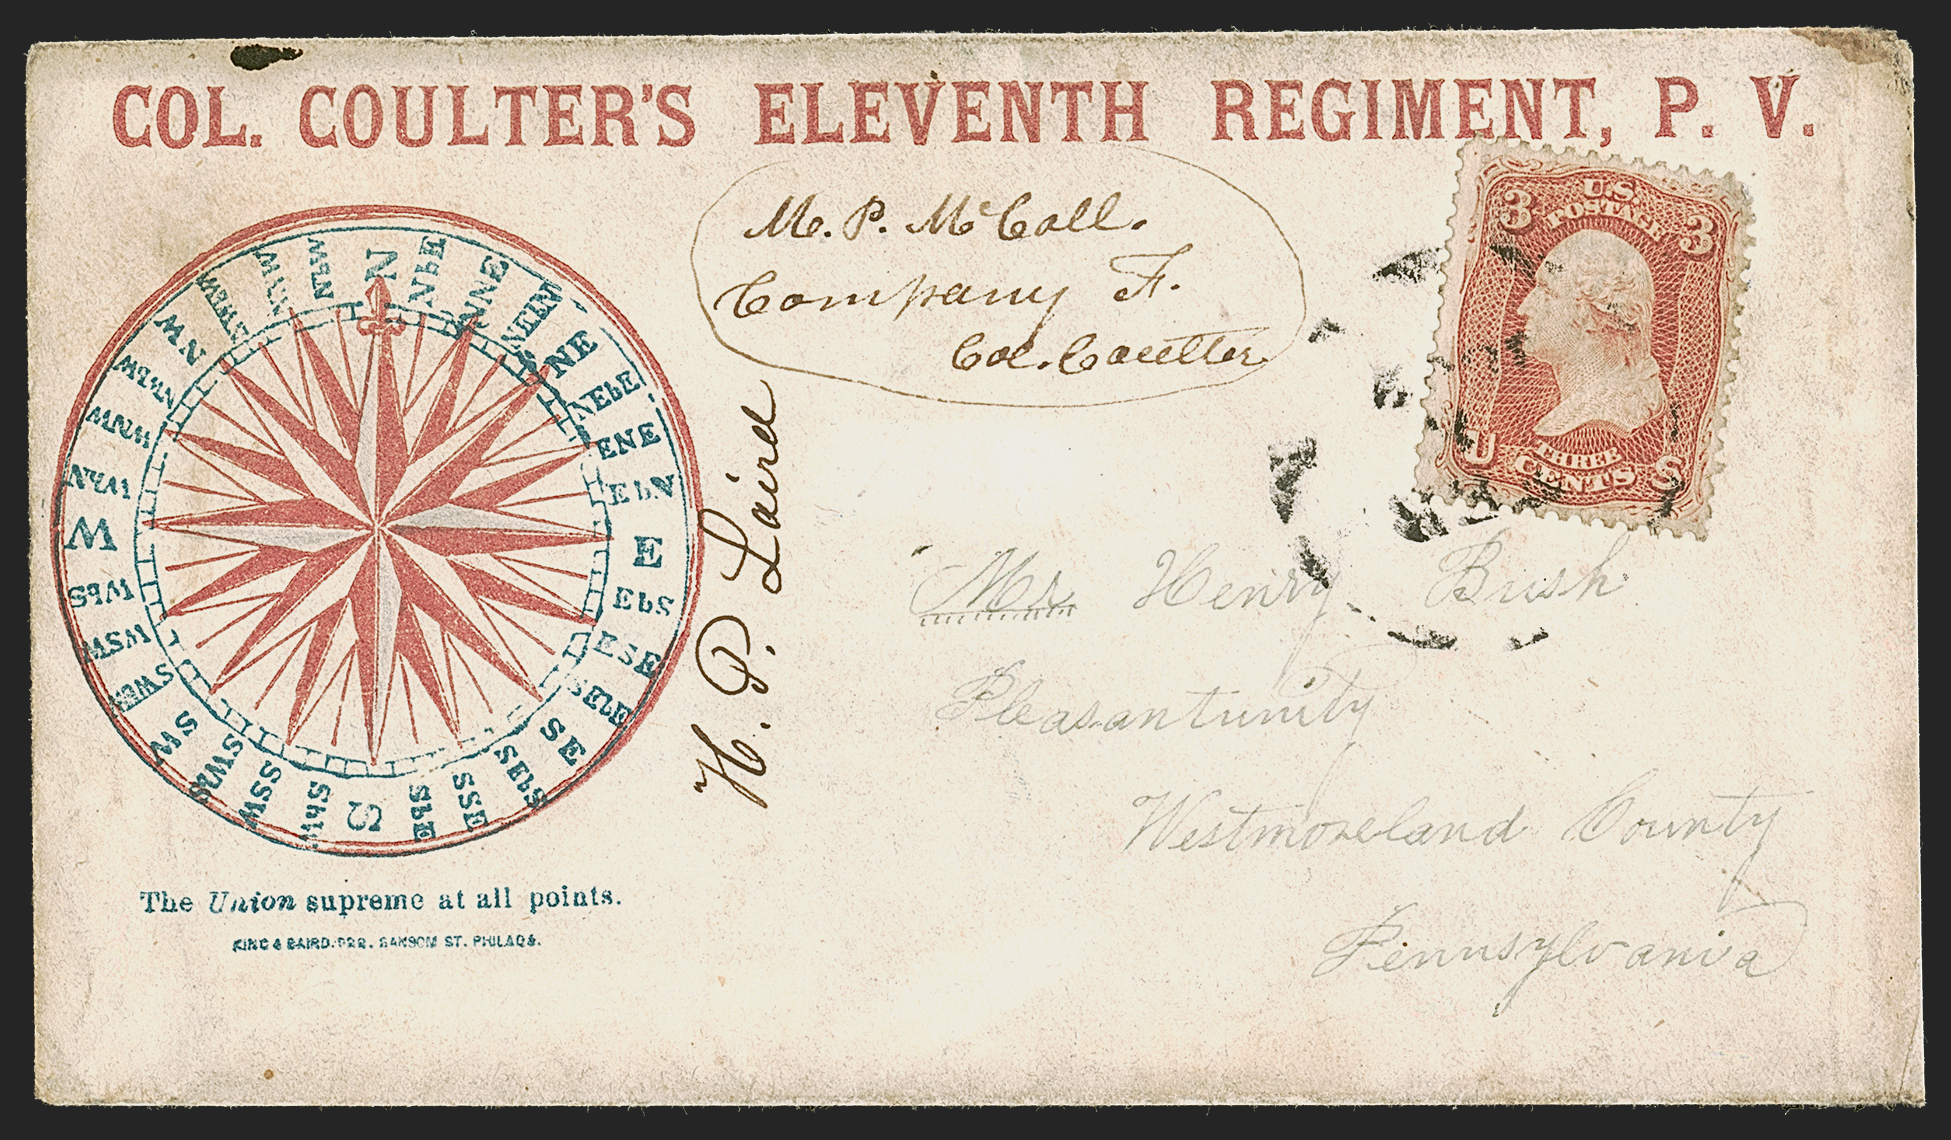 COL. COULTER'S ELEVENTH REGIMENT, P. V.
M. P. McCall.
Company F.
Col. Coulter
H. P. Laird
U.S. POSTAGE
3 3
THREE CENTS
U S
Mr Henry Bush
Pleasantunity
Westmoreland County
Pennsylvania
N
NbE
NNE
NEbN
NE
NEbE
ENE
EbN
E
EbS
ESE
SEbE
SE
SEbS
SSE
SbE
S
SbW
SSW
SWbS
SW
WSW
WbS
W
WbN
WNW
NW
The Union supreme at all points.
KING & BAIRD, PRS. SANSOM ST. PHILADA.